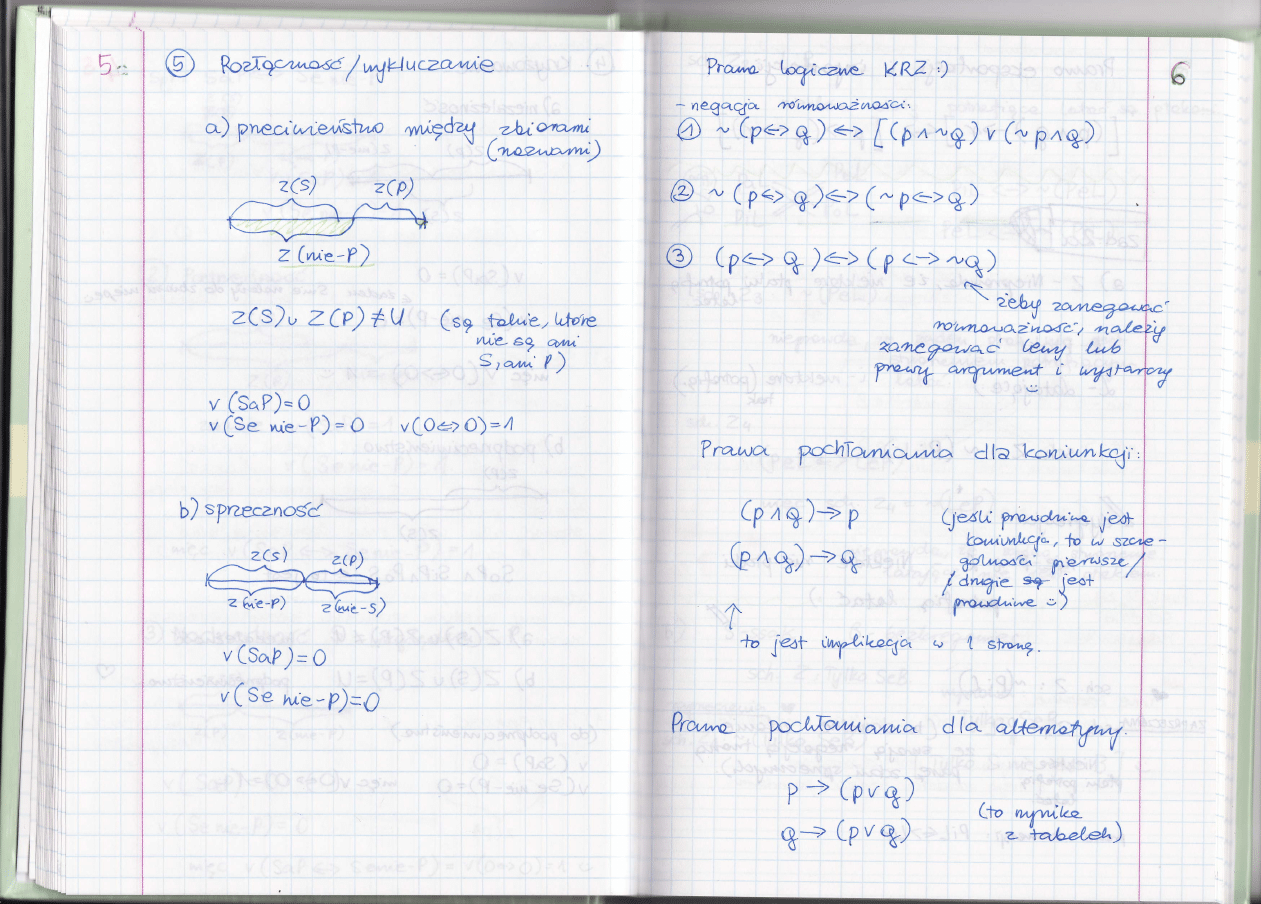 5
⑤ Rozłączność/wykluczanie
a) przeciwieństwo między zbiorami
(nazwami)
z(S) z(P)
z(nie-P)
z(S)∪ z(P) ≠ U (są takie, które
nie są ani
S, ani P)
v(SaP)=0
v(Se nie-P)=0 v(0<=>0)=1
b) sprzeczność
z(S) z(P)
z(nie-P) z(nie-S)
v(SaP)=0
v(Se nie-P)=0
6
Prawa logiczne KRZ :)
- negacja równoważności:
① ~(p<=>q)<=>[(p∧~q)∨(~p∧q)]
② ~(p<=>q)<=>(~p<=>q)
③ (p<=>q)<=>(p<=>~q)
żeby zanegować
równoważność, należy
zanegować lewy lub
prawy argument i wystarczy
Prawa pochłaniania dla koniunkcji:
(p∧q)→p (jeśli prawdziwa jest
koniunkcja, to w szcze-
(p∧q)→q gólności pierwsze/
/drugie są jest
prawdziwe :)
↑
to jest implikacja w 1 stronę.
Prawa pochłaniania dla alternatywy.
p→(p∨q)
(to wynika
q→(p∨q) z tabelek)